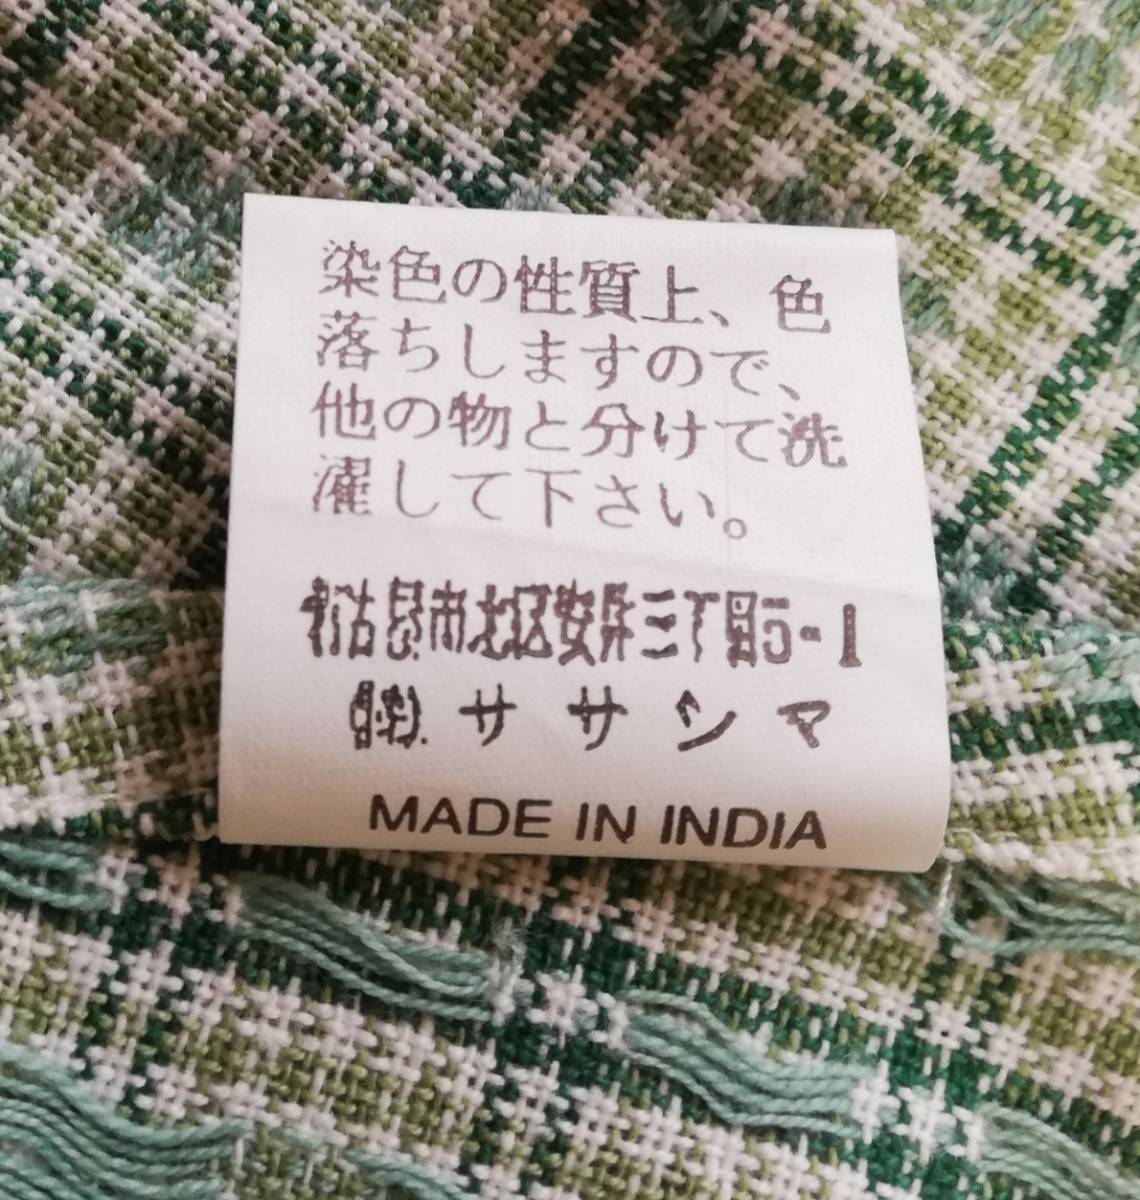 染色の性質上、色
落ちしますので、
他の物と分けて洗
濯して下さい。
名古屋市北区安井三丁目5-1
㈱ササシマ
MADE IN INDIA